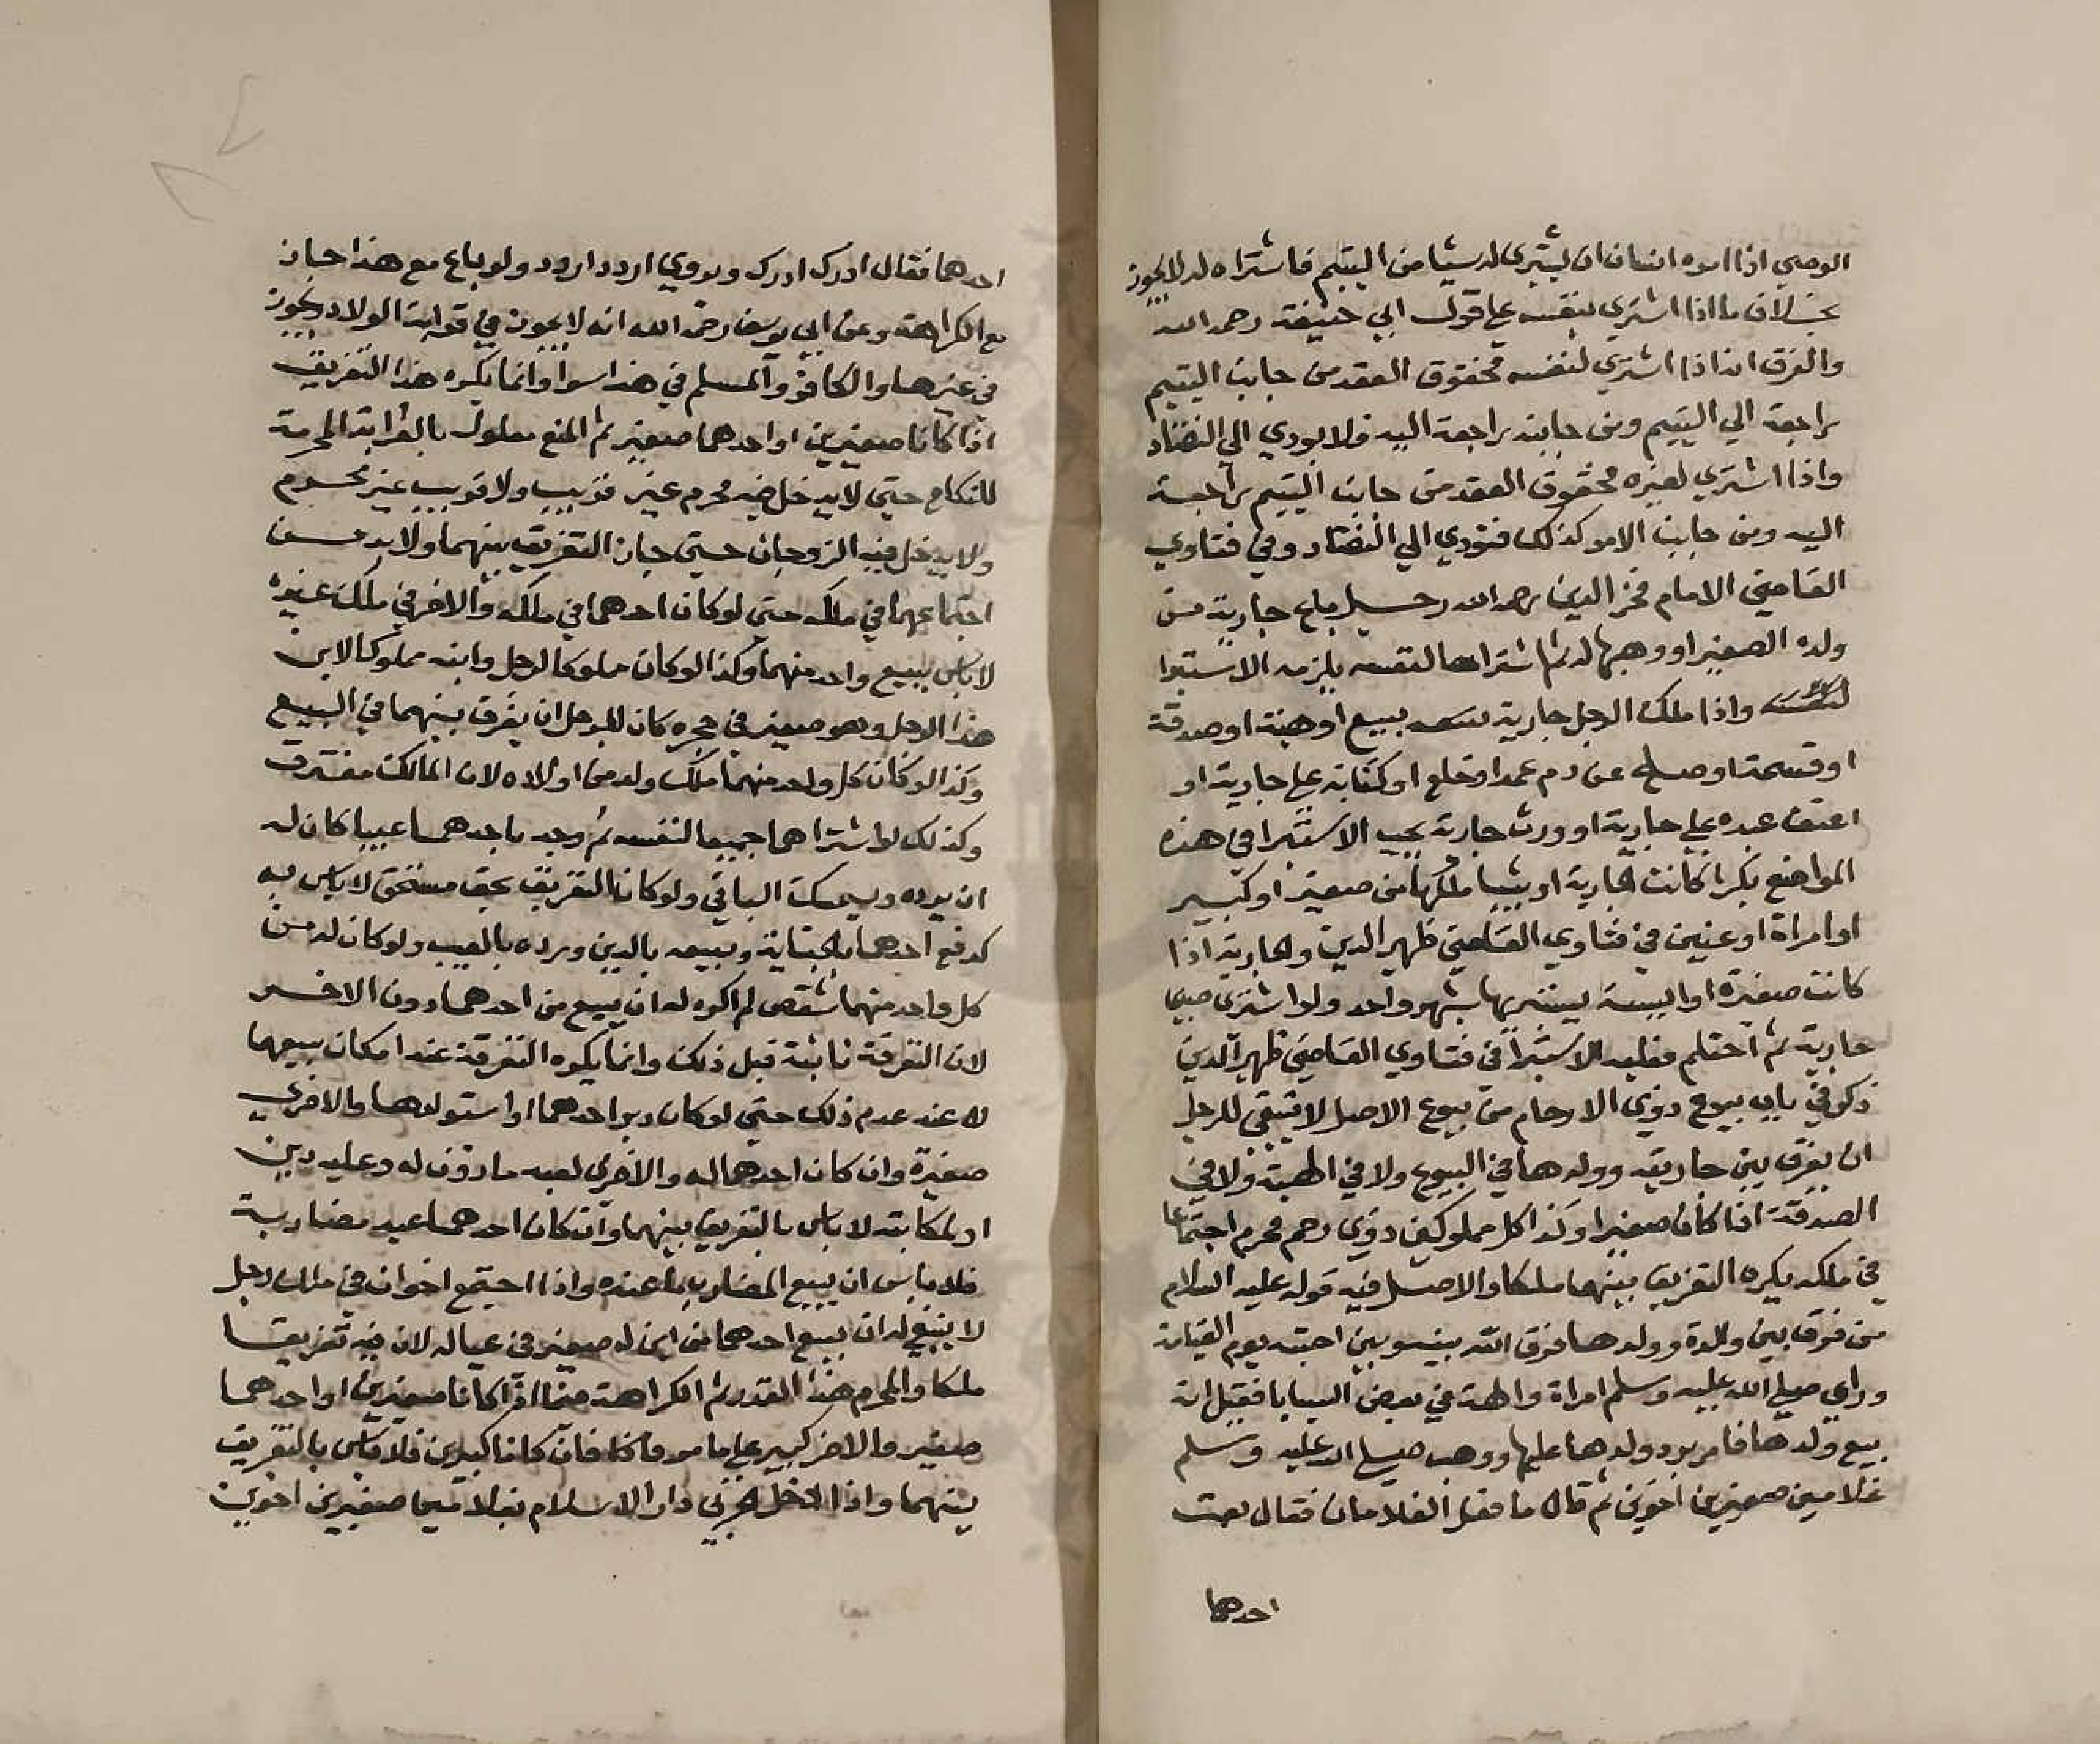 الوصي اذا امره انسان ان يشتري له شيا من اليتيم فاشتراه له لا يجوز
بخلاف ما اذا اشتري لنفسه علي قول ابي حنيفة رحمه الله
والفرق انه اذا اشتري لنفسه فحقوق العقد من جانب اليتيم
راجعة الي اليتيم ومن جانبه راجعة اليه فلا يودي الي التضاد
واذا اشتري لغيره فحقوق العقد من جانب اليتيم راجعة
اليه ومن جانب الامر كذلك فتودي الي التضاد وفي فتاوي
القاضي الامام فخر الدين رحمه الله رجل باع جارية من
ولده الصغير او وهبها له ثم اشتراها لنفسه يلزمه الاستبرا
واذا ملك الرجل جارية ببيع او هبة او صدقة
او قسمة او صلح عن دم عمد او خلع او كتابة علي جارية او
اعتق عبده علي جارية او ورث جارية يجب الاستبرا في هذه
المواضع بكرا كانت الجارية او ثيبا ملكها من صغير او كبير
او امراة او عنين في فتاوي القاضي ظهير الدين والجارية اذا
كانت صغيرة او ايسة يستبريها بشهر واحد ولو اشتري صبي
جارية ثم احتلم فعليه الاستبرا في فتاوي القاضي ظهير الدين
ذكر في باب بيوع ذوي الارحام من بيوع الاصل لا ينبغي للرجل
ان يفرق بين جاريته وولدها في البيوع ولا في الهبة ولا في
الصدقة اذا كان صغيرا وكذا كل مملوكين ذوي رحم محرم اجتمعا
في ملكه يكره التفريق بينهما ملكا والاصل فيه قوله عليه السلام
من فرق بين والدة وولدها فرق الله بينه وبين احبته يوم القيامة
وراي صلي الله عليه وسلم امراة والهة في بعض السبايا فقيل انه
بيع ولدها فامر برد ولدها عليها ووهب صلي الله عليه وسلم
غلامين صغيرين اخوين ثم قال ما فعل الغلامان فقال بعت
احدهما
احدهما فقال ادرك ادرك ويروي اردد اردد ولو باع مع هذا جاز
مع الكراهة وعن ابي يوسف رحمه الله انه لا يجوز في قرابة الولاد ويجوز
في غيرها والكافر والمسلم في هذا سوا وانما يكره هذا التفريق
اذا كانا صغيرين او احدهما صغير ثم المنع معلول بالقرابة المحرمة
للنكاح حتي لا يدخل فيه محرم غير قريب ولا قريب غير محرم
ولا يدخل فيه الزوجان حتي جاز التفريق بينهما ولا بد من
اجتماعهما في ملكه حتي لو كان احدهما في ملكه والاخر في ملك غيره
لا باس ببيع واحد منهما وكذا لو كان مملوكا لرجل وابنه مملوكا لابن
هذا الرجل وهو صغير في حجره كان للرجل ان يفرق بينهما في البيع
وكذا لو كان كل واحد منهما ملك ولد من اولاده لان المالك مفترق
وكذلك لو اشتراهما جميعا لنفسه ثم وجد باحدهما عيبا كان له
ان يرده ويمسك الباقي ولو كان التفريق بحق مستحق لا باس به
كدفع احدهما بالجناية وببيعه بالدين ورده بالعيب ولو كان له من
كل واحد منهما شقص لم اكره له ان يبيع من احدهما دون الاخر
لان التفرقة ثابتة قبل ذلك وانما يكره التفرقة عند امكان بيعهما
لا عند عدم ذلك حتي لو كان دبر احدهما او استولدها والاخري
صغيرة وان كان احدهما له والاخري لعبد ماذون له وعليه دين
او لمكاتبه لا باس بالتفريق بينهما وان كان احدهما عبد مضاربة
فلا باس ان يبيع المضارب ما عنده واذا اجتمع اخوان في ملك رجل
لا ينبغي له ان يبيع احدهما من ابن له صغير في عياله لان فيه تفريقا
ملكا والمحرم هذا القدر ثم الكراهة فيما اذا كانا صغيرين او احدهما
صغير والاخر كبير علي ما مر فاما اذا كانا كبيرين فلا باس بالتفريق
بينهما واذا دخل الحربي دار الاسلام بغلامين صغيرين اخوين